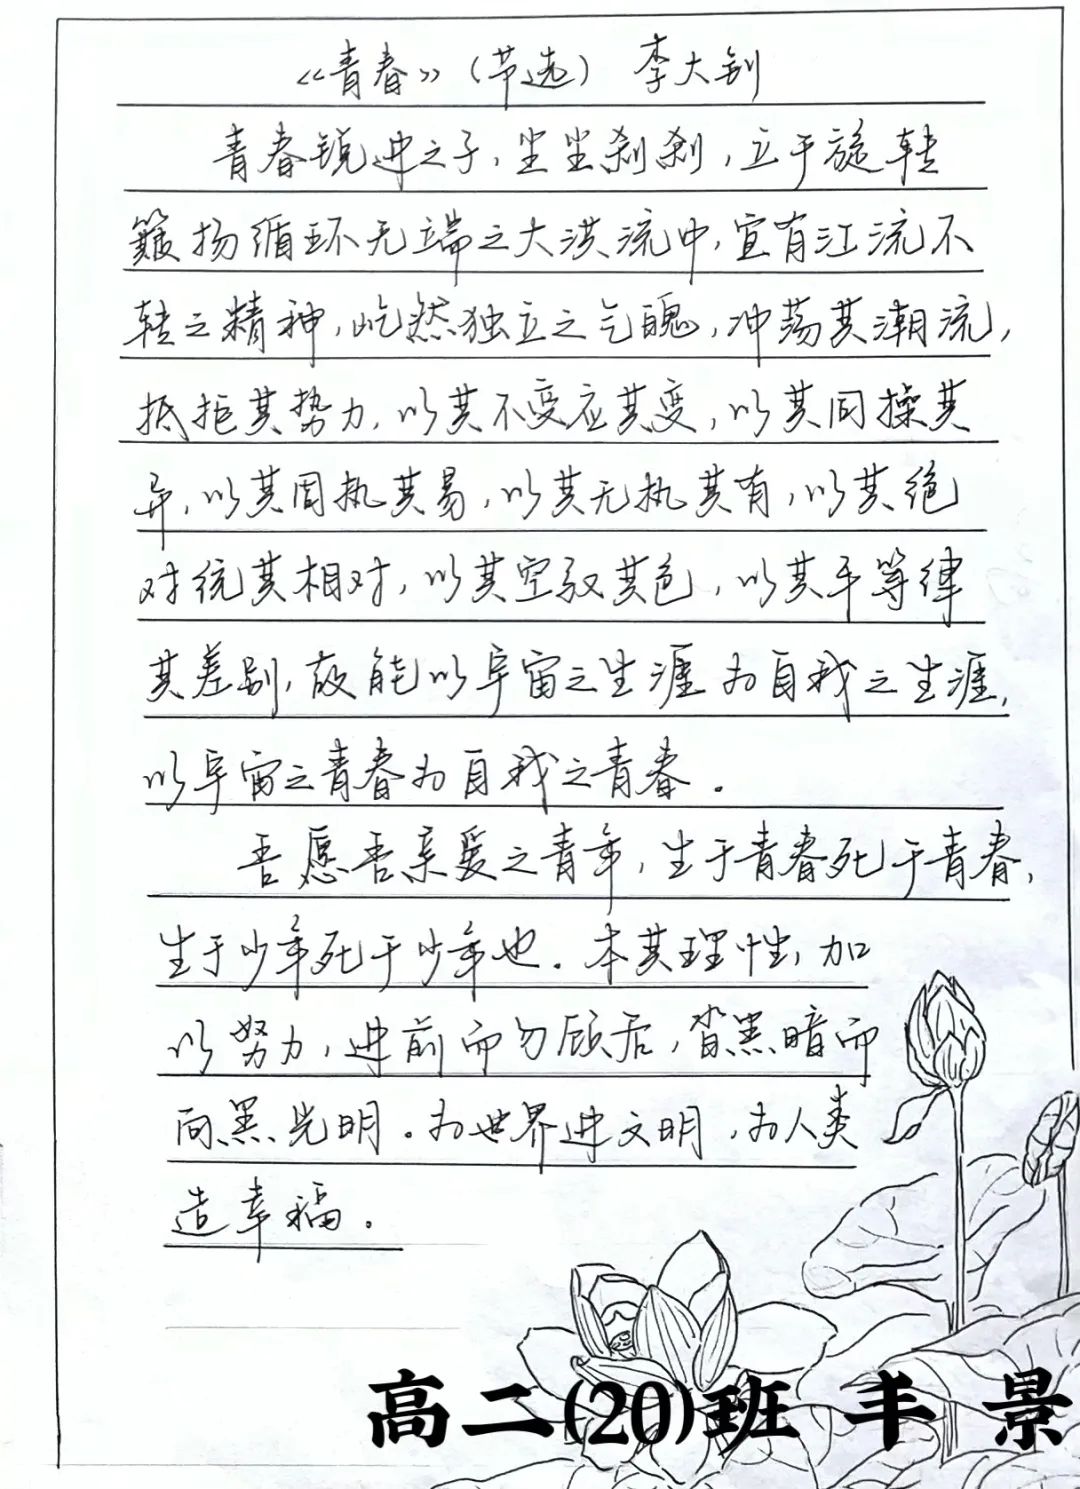 《青春》（节选） 李大钊
青春锐进之子，尘尘刹刹，立于旋转
簸扬循环无端之大洪流中，宜有江流不
转之精神，屹然独立之气魄，冲荡其潮流，
抵拒其势力，以其不变应其变，以其同操其
异，以其周执其易，以其无执其有，以其绝
对统其相对，以其空驭其色，以其平等律
其差别，故能以宇宙之生涯为自我之生涯，
以宇宙之青春为自我之青春。
吾愿吾亲爱之青年，生于青春死于青春，
生于少年死于少年也。本其理性，加
以努力，进前而勿顾后，背黑暗而
向黑光明。为世界进文明，为人类
造幸福。
高二(20)班 丰 景